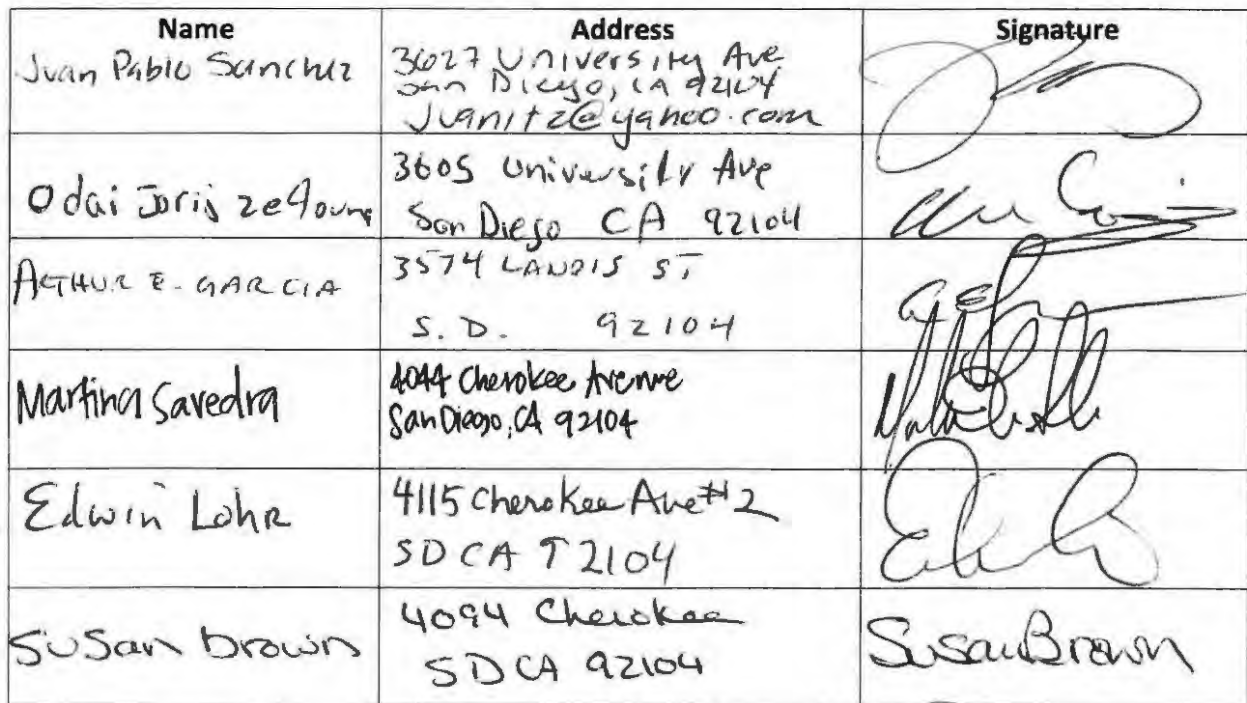 Name Address Signature
Juan Pablo Sanchez
3627 University Ave
San Diego, CA 92104
Juanitz@yahoo.com
Odai Joris
3605 University Ave
San Diego CA 92104
ARTHUR E. GARCIA
3574 LANDIS ST
S.D. 92104
Martina Savedra
4044 Cherokee Avenue
San Diego, CA 92104
Edwin Lohr
4115 Cherokee Ave #2
SD CA 92104
Susan brown
4094 Cherokee
SD CA 92104
Susan Brown